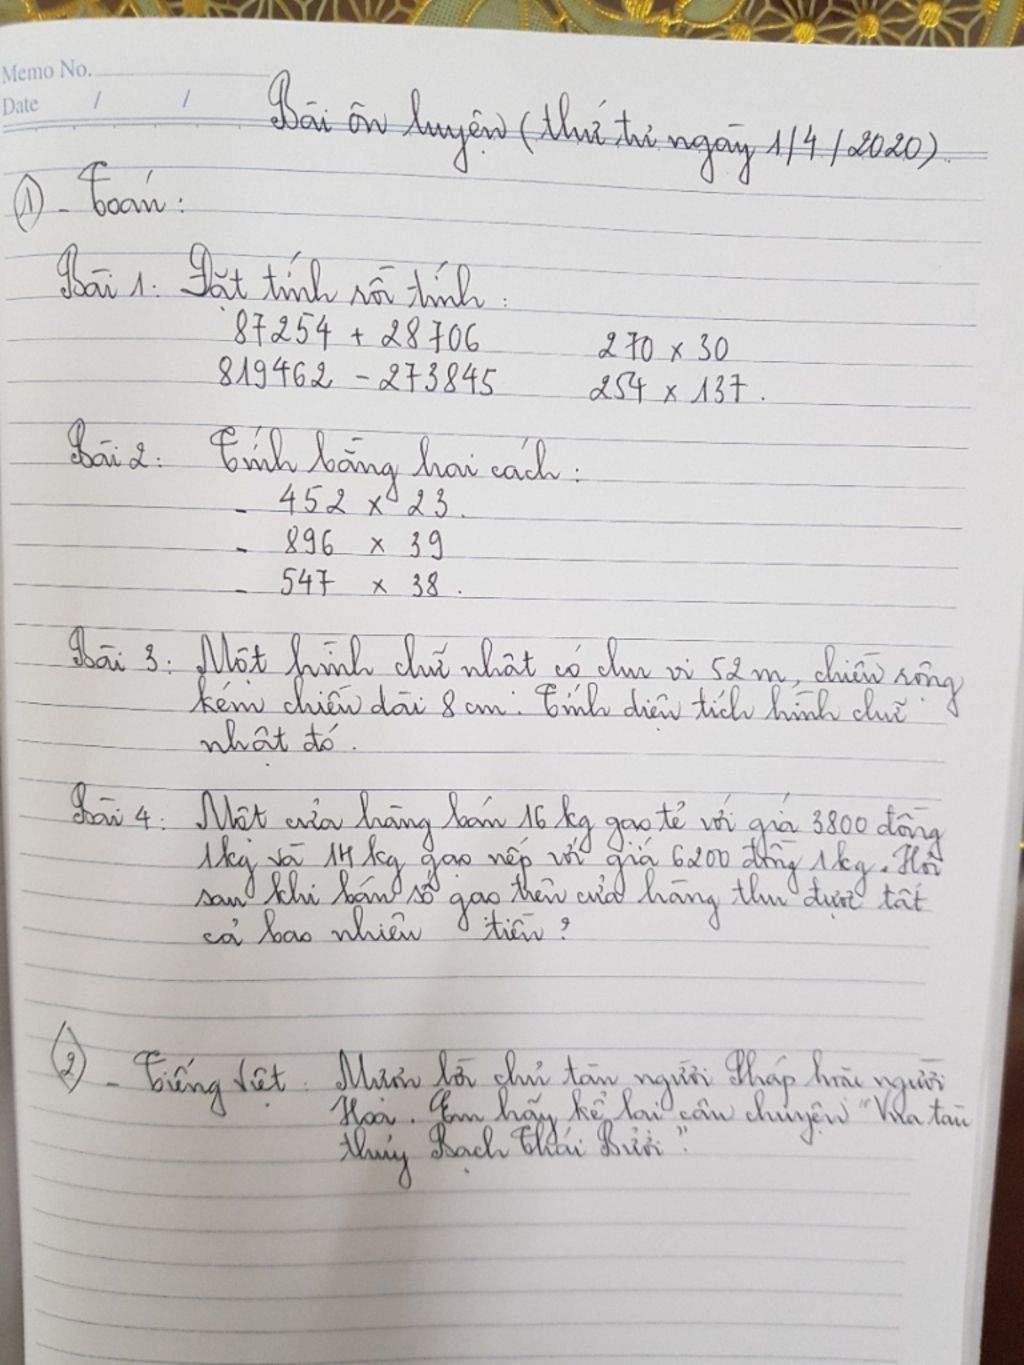 Memo No.
Date / /
Bài ôn luyện (thứ tư ngày 1/4/2020).
① - Toán:
Bài 1: Đặt tính rồi tính:
87254 + 28706 270 x 30
819462 - 273845 254 x 137.
Bài 2: Tính bằng hai cách:
- 452 x 23.
- 896 x 39
- 547 x 38.
Bài 3: Một hình chữ nhật có chu vi 52m, chiều rộng
kém chiều dài 8 cm. Tính diện tích hình chữ
nhật đó.
Bài 4: Một cửa hàng bán 16 kg gạo tẻ với giá 3800 đồng
1kg và 14 kg gạo nếp với giá 6200 đồng 1kg. Hỏi
sau khi bán số gạo trên cửa hàng thu được tất
cả bao nhiêu tiền?
② - Tiếng Việt: Mượn lời chủ tàu người Pháp hoặc người
Hoa. Em hãy kể lại câu chuyện "Vua tàu
thủy Bạch Thái Bưởi".